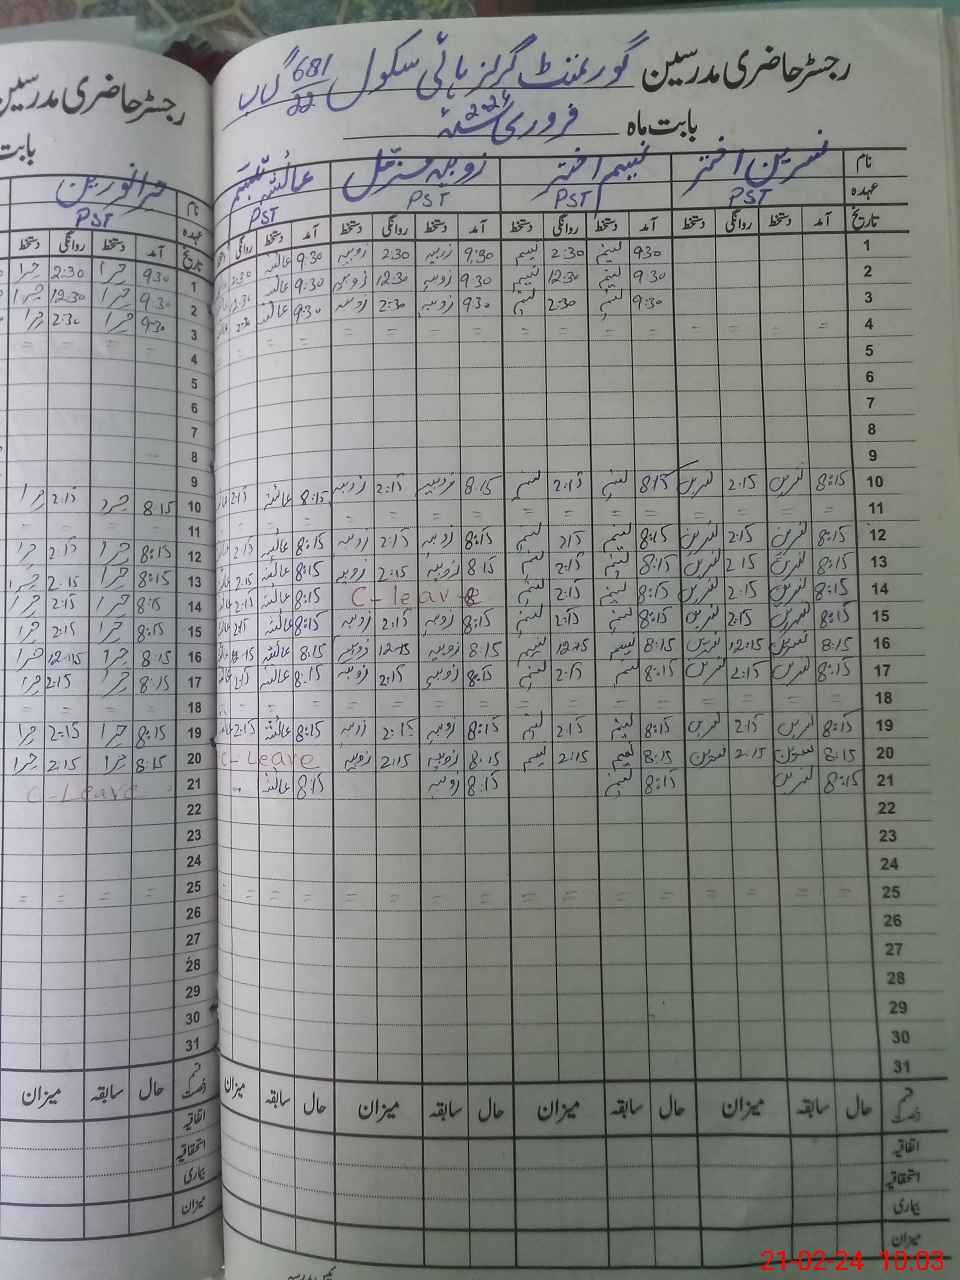 رجسٹر حاضری مدرسین گورنمنٹ گرلز ہائی سکول 681/22 گ ب
بابت ماہ فروری 2024
نام نسرین اختر نسیم اختر زوبیہ عائشہ
عہدہ PST PST PST PST
تاریخ آمد دستخط روانگی دستخط آمد دستخط روانگی دستخط آمد دستخط روانگی دستخط آمد دستخط روانگی
1 9:30 نسیم 2:30 نسیم 9:30 زوبیہ 2:30 زوبیہ 9:30 عائشہ 2:30
2 9:30 نسیم 12:30 نسیم 9:30 زوبیہ 12:30 زوبیہ 9:30 عائشہ 12:30
3 9:30 نسیم 2:30 نسیم 9:30 زوبیہ 2:30 زوبیہ 9:30 عائشہ 2:30
4 = = = = = = = = = = = =
5
6
7
8
9
10 8:15 نسرین 2:15 نسرین 8:15 نسیم 2:15 نسیم 8:15 زوبیہ 2:15 زوبیہ 8:15 عائشہ 2:15
11 = = = = = = = = = = = = = =
12 8:15 نسرین 2:15 نسرین 8:15 نسیم 2:15 نسیم 8:15 زوبیہ 2:15 زوبیہ 8:15 عائشہ 2:15
13 8:15 نسرین 2:15 نسرین 8:15 نسیم 2:15 نسیم 8:15 زوبیہ 2:15 زوبیہ 8:15 عائشہ 2:15
14 8:15 نسرین 2:15 نسرین 8:15 نسیم 2:15 نسیم C-leave 8:15 عائشہ 2:15
15 8:15 نسرین 2:15 نسرین 8:15 نسیم 2:15 نسیم 8:15 زوبیہ 2:15 زوبیہ 8:15 عائشہ 2:15
16 8:15 نسرین 12:15 نسرین 8:15 نسیم 12:15 نسیم 8:15 زوبیہ 12:15 زوبیہ 8:15 عائشہ 12:15
17 8:15 نسرین 2:15 نسرین 8:15 نسیم 2:15 نسیم 8:15 زوبیہ 2:15 زوبیہ 8:15 عائشہ 2:15
18 = = = = = = = = = = = = = =
19 8:15 نسرین 2:15 نسرین 8:15 نسیم 2:15 نسیم 8:15 زوبیہ 2:15 زوبیہ 8:15 عائشہ 2:15
20 8:15 نسرین 2:15 نسرین 8:15 نسیم 2:15 نسیم 8:15 زوبیہ 2:15 زوبیہ C-Leave
21 8:15 نسرین 8:15 نسیم 8:15 زوبیہ 8:15 عائشہ
22
23
24
25 = = = = = = = = = = = = = =
26
27
28
29
30
31
قسم رخصت حال سابقہ میزان حال سابقہ میزان حال سابقہ میزان حال سابقہ میزان
اتفاقیہ
استحقاقیہ
بیماری
میزان
رجسٹر حاضری مدرسین
بابت
نام حرا نورین
عہدہ PST
تاریخ آمد دستخط روانگی دستخط
1 9:30 حرا 2:30 حرا
2 9:30 حرا 12:30 حرا
3 9:30 حرا 2:30 حرا
4 = = = =
5
6
7
8
9
10 8:15 حرا 2:15 حرا
11 = = = =
12 8:15 حرا 2:15 حرا
13 8:15 حرا 2:15 حرا
14 8:15 حرا 2:15 حرا
15 8:15 حرا 2:15 حرا
16 8:15 حرا 12:15 حرا
17 8:15 حرا 2:15 حرا
18 = = = =
19 8:15 حرا 2:15 حرا
20 8:15 حرا 2:15 حرا
21 C-Leave
22
23
24
25 = = = =
26
27
28
29
30
31
قسم رخصت حال سابقہ میزان
اتفاقیہ
استحقاقیہ
بیماری
میزان
21-02-24 10:03